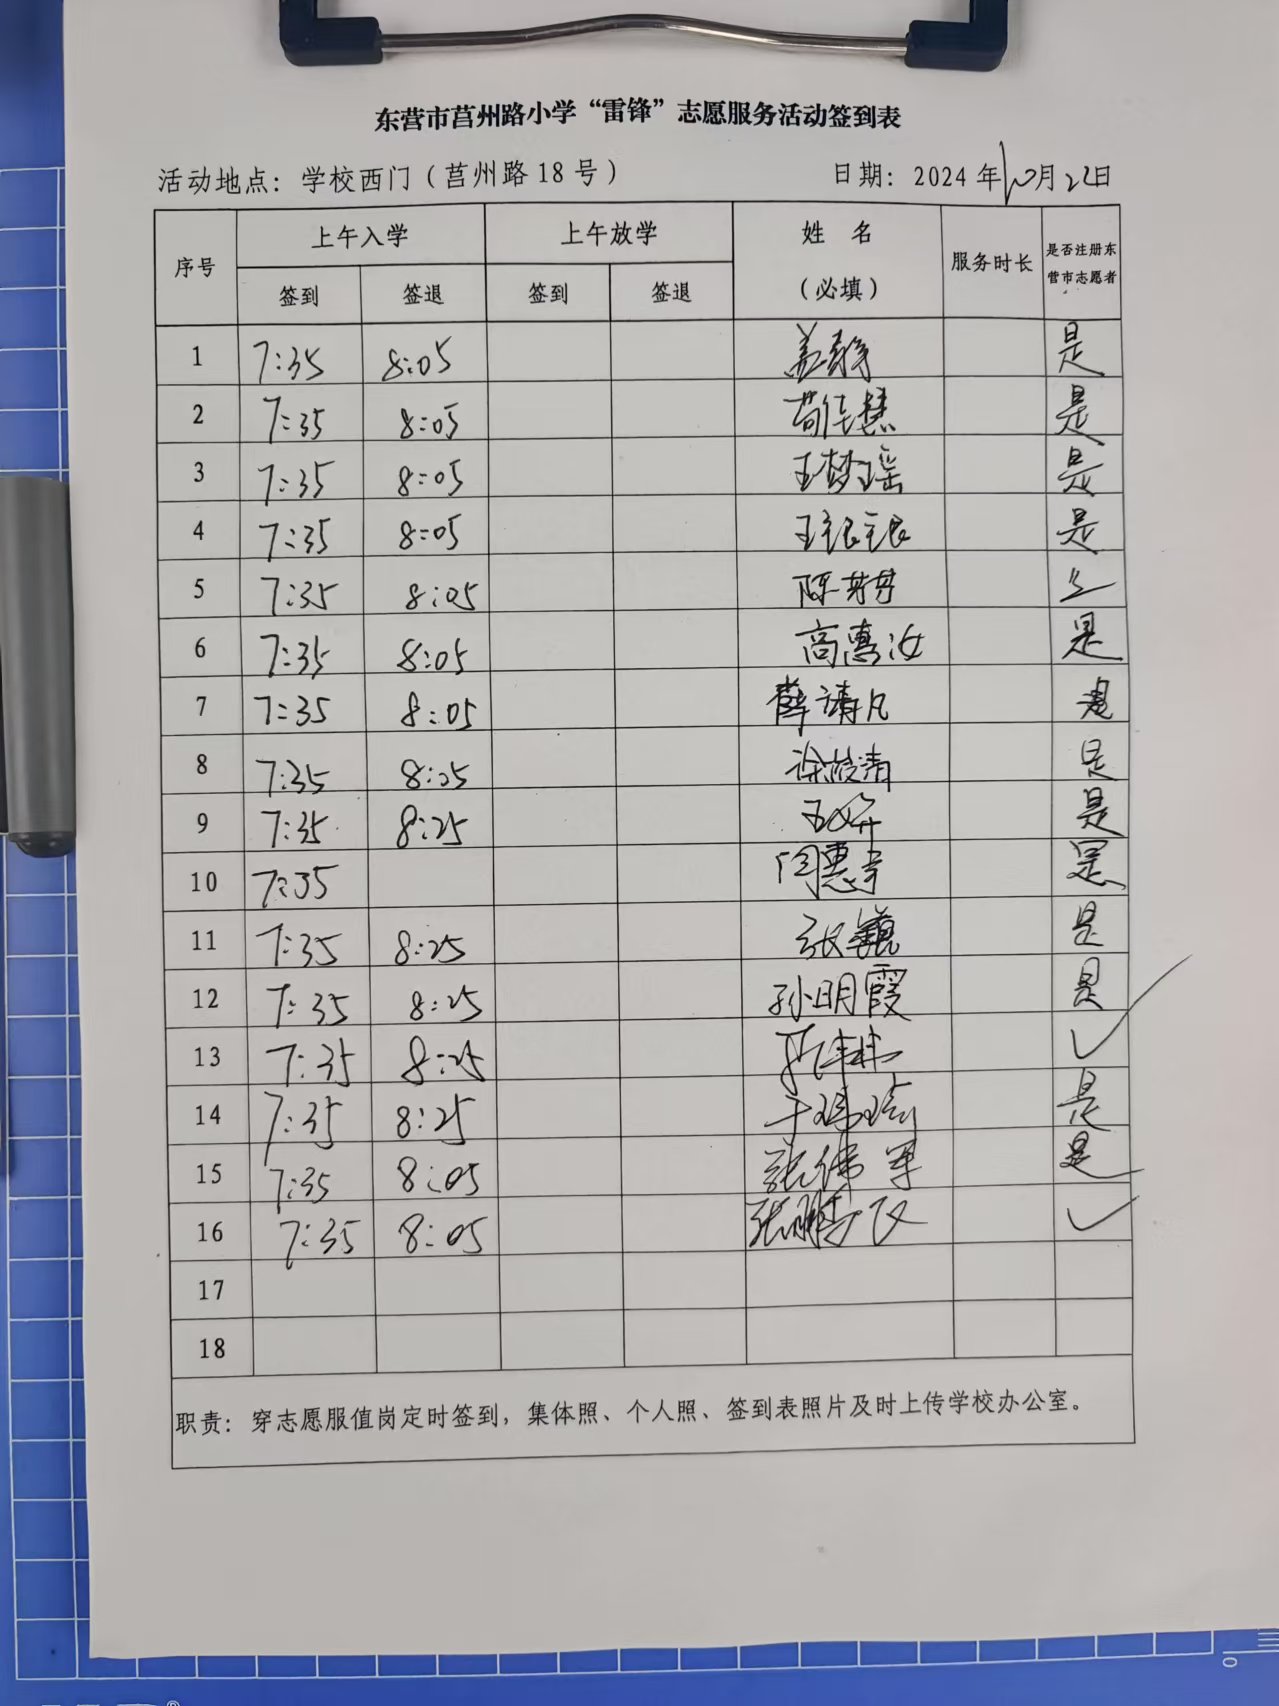 东营市莒州路小学“雷锋”志愿服务活动签到表
活动地点：学校西门（莒州路18号） 日期：2024年10月22日
序号 上午入学 上午放学 姓名（必填） 服务时长 是否注册东营市志愿者
签到 签退 签到 签退
1 7:35 8:05 是
2 7:35 8:05 苟佳慧 是
3 7:35 8:05 王梦瑶 是
4 7:35 8:05 是
5 7:35 8:05 陈芳芳
6 7:35 8:05 高惠汝 是
7 7:35 8:05 薛清凡 是
8 7:35 8:25 是
9 7:35 8:25 是
10 7:35 闫惠 是
11 7:35 8:25 张 是
12 7:35 8:25 孙明霞 是
13 7:35 8:25 ✓
14 7:35 8:25 于玮琦 是
15 7:35 8:05 张伟军 是
16 7:35 8:05 张 ✓
17
18
职责：穿志愿服值岗定时签到，集体照、个人照、签到表照片及时上传学校办公室。